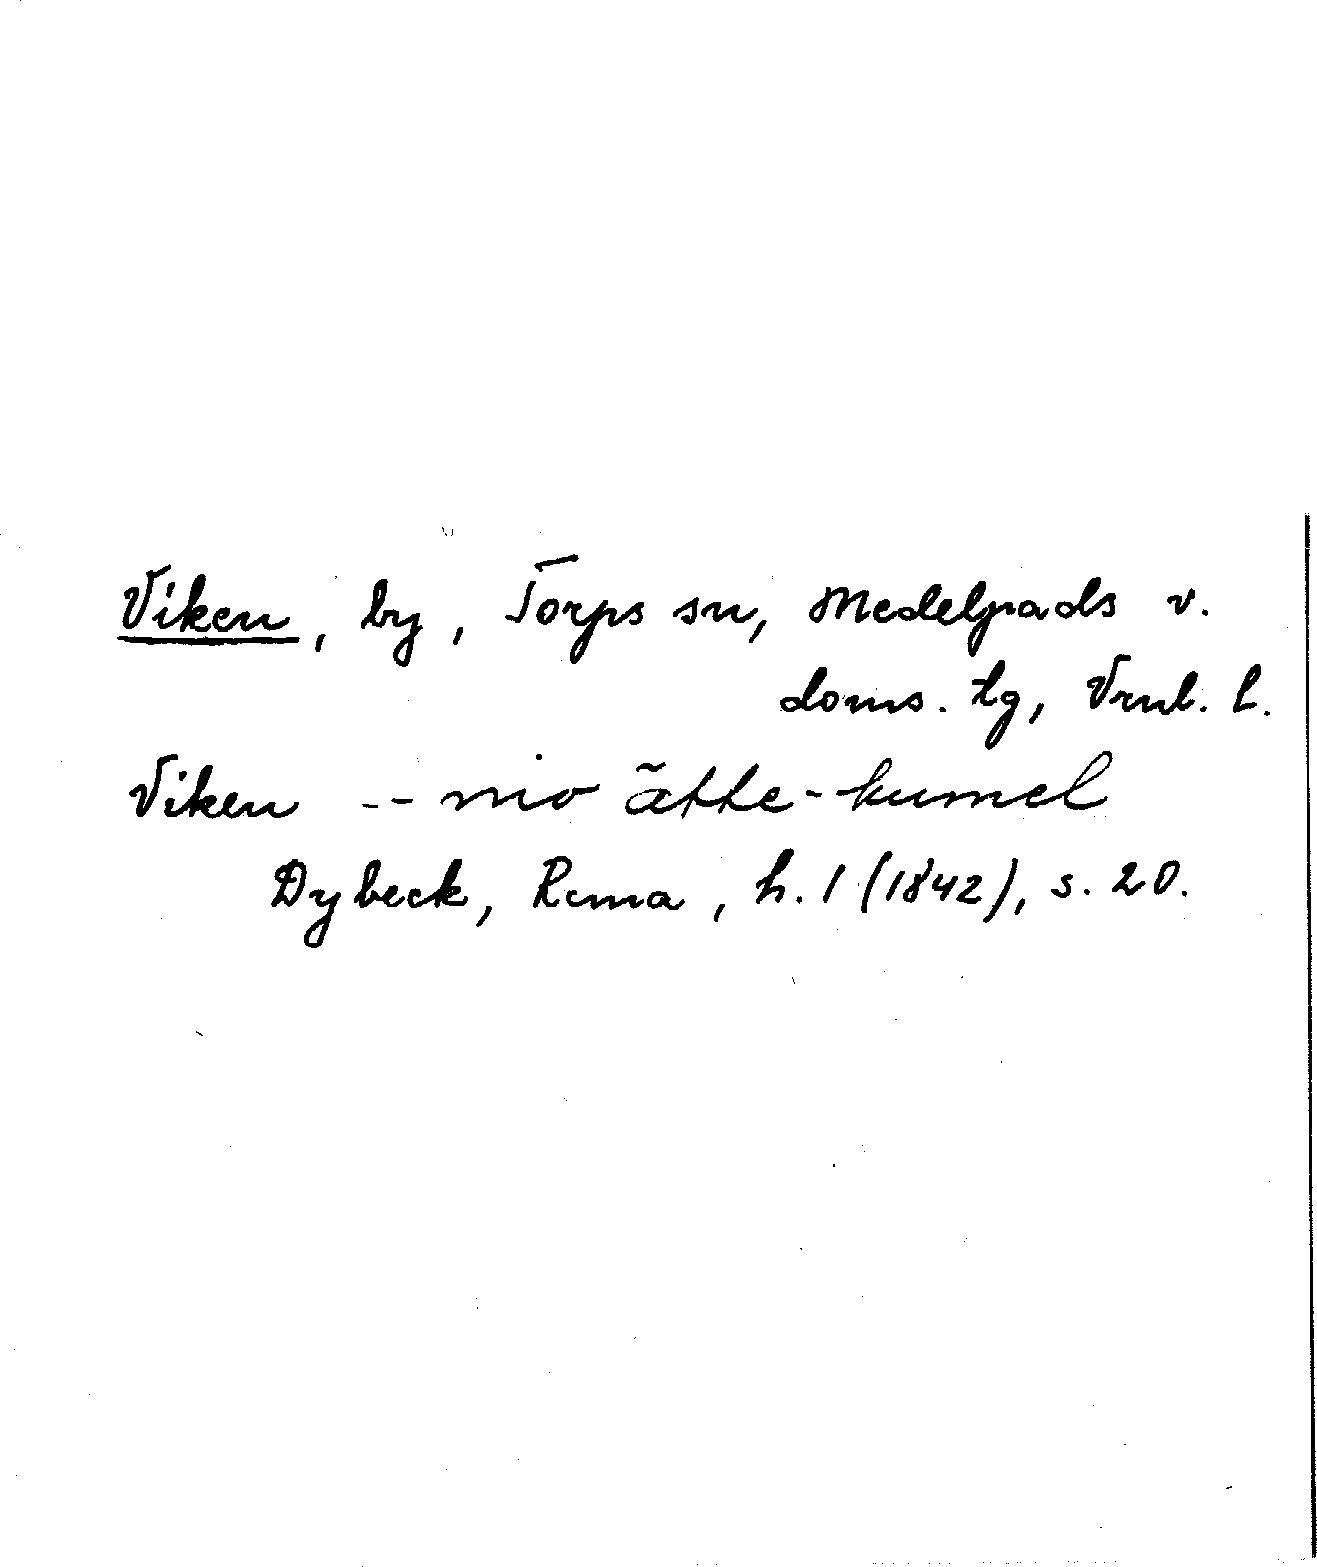 Viken, by, Torps sn, Medelpads v.
doms. tg, Vrnl. l.
Viken -- nio ätte-kumel
Dybeck, Runa, h. 1 (1842), s. 20.